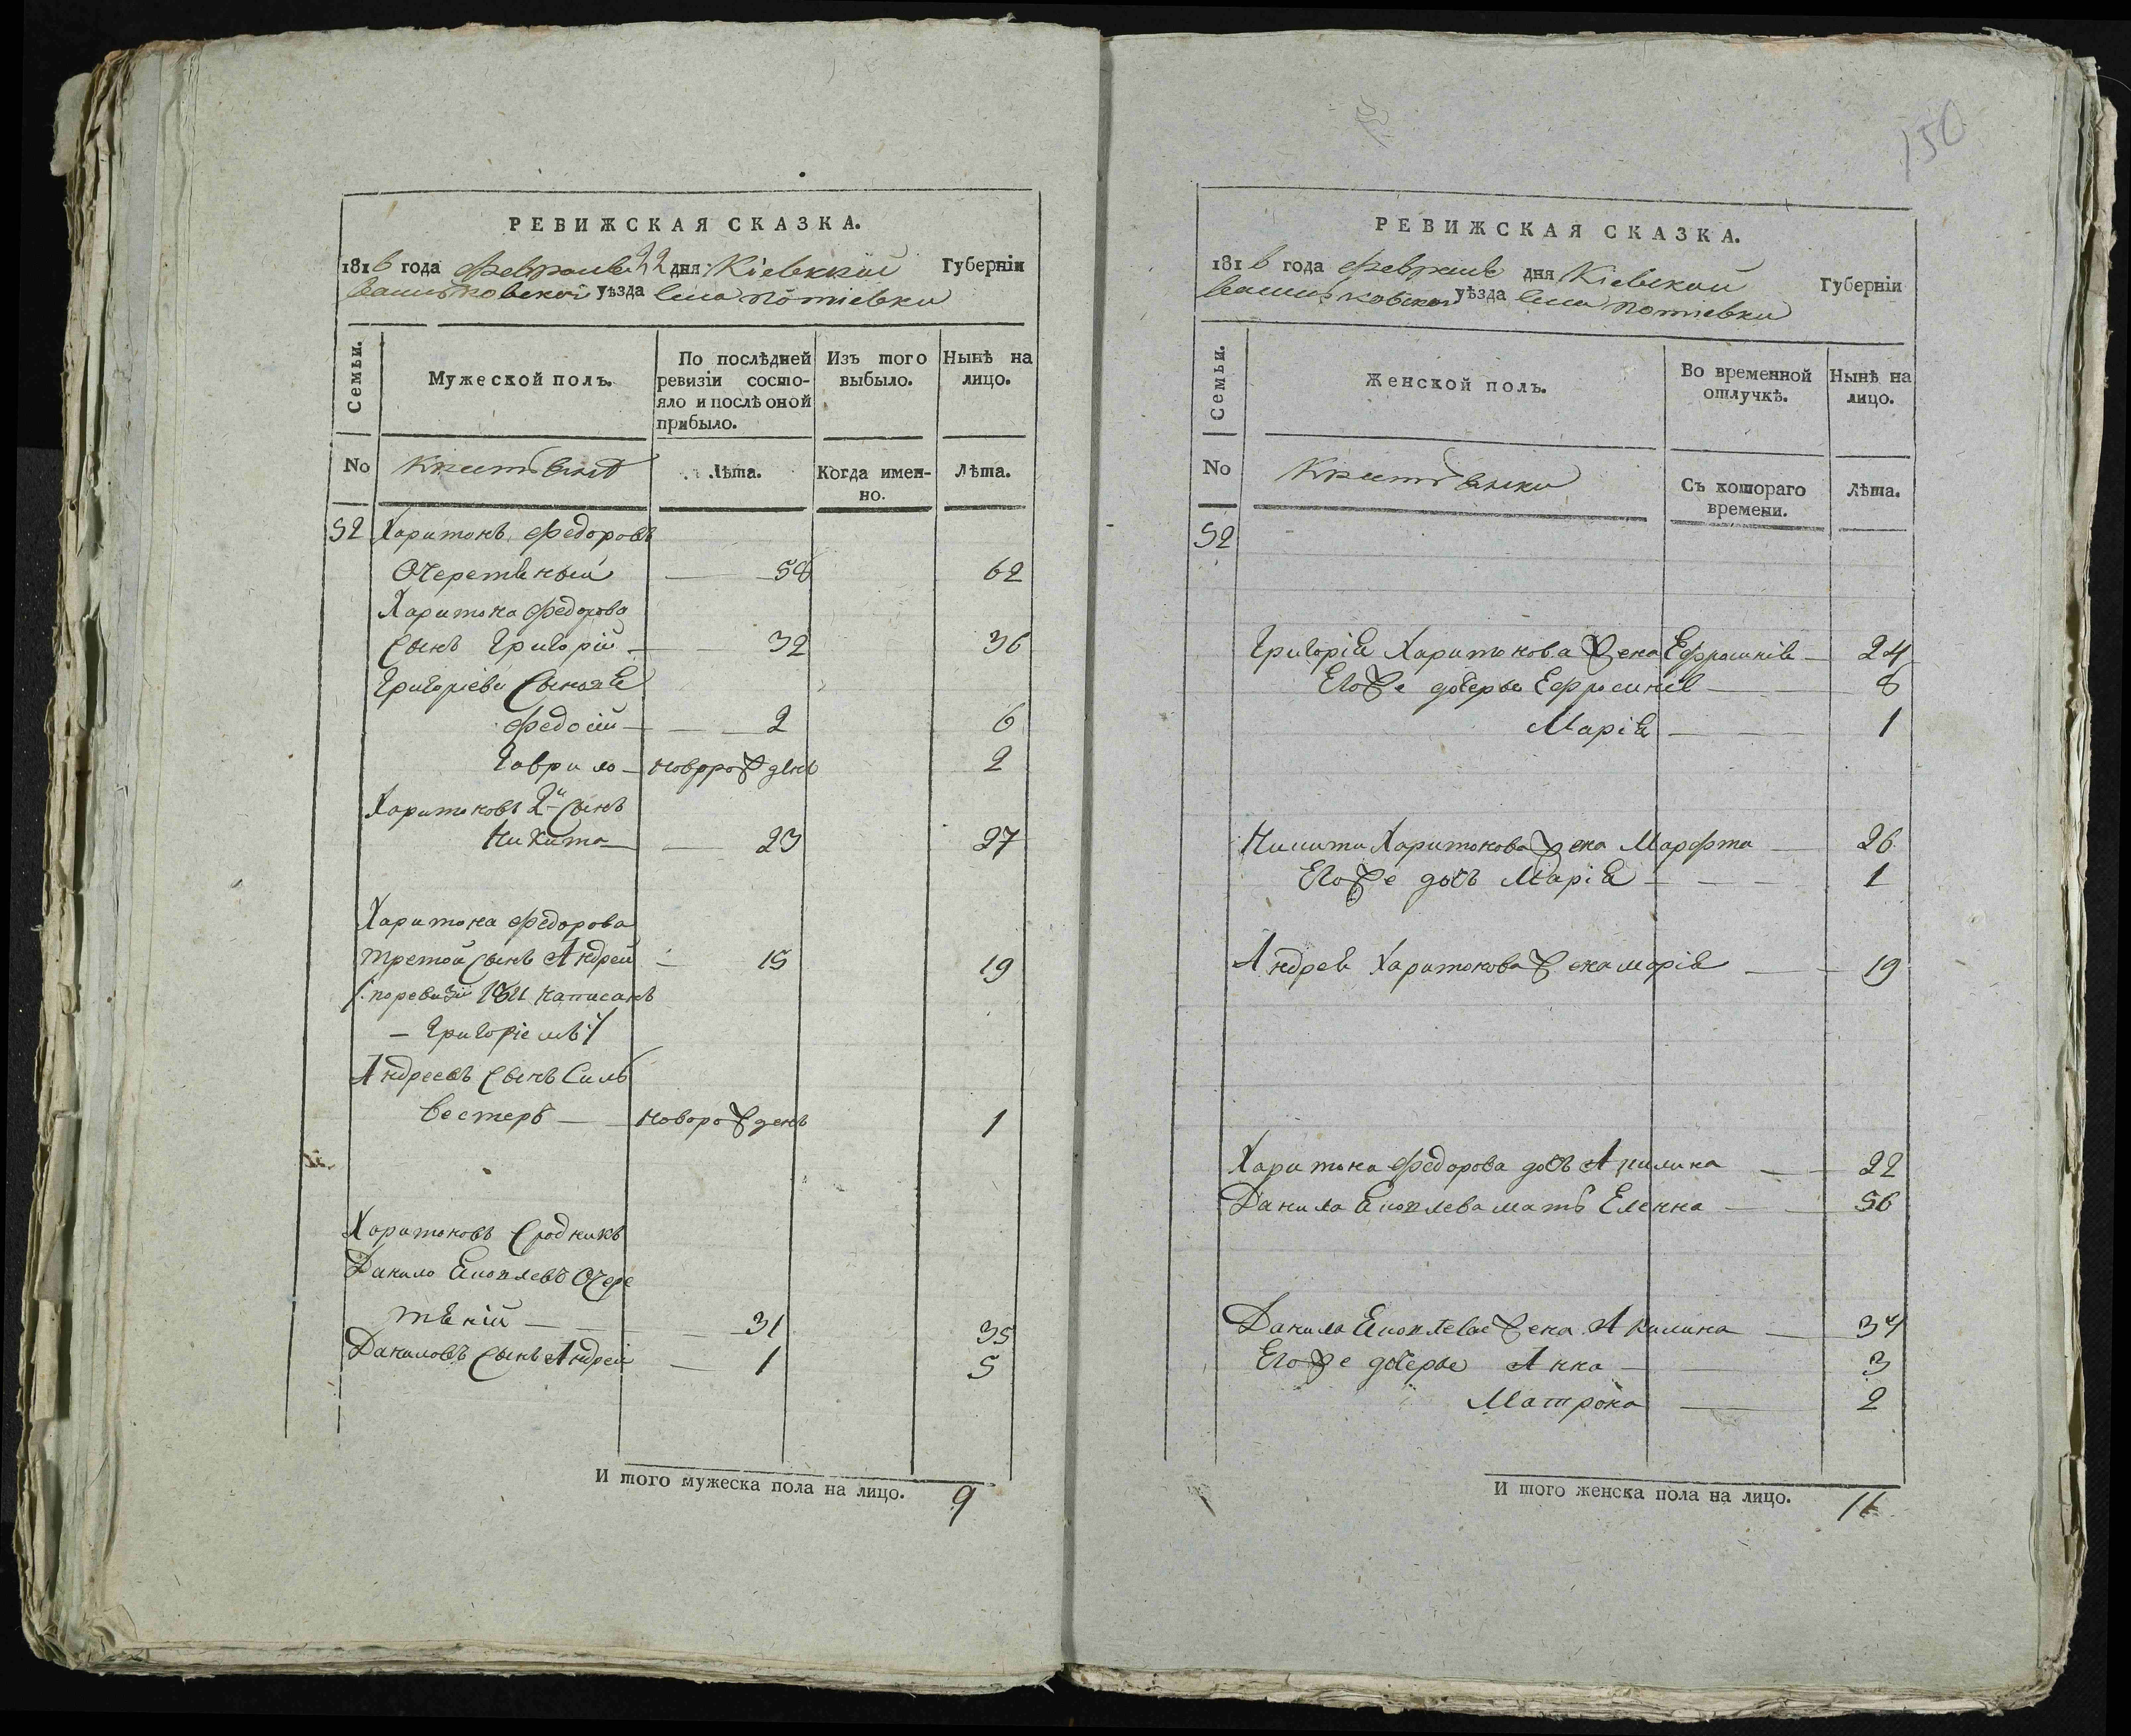 РЕВИЖСКАЯ СКАЗКА.
1816 года февраля 22 дня Кіевской Губерніи
Васильковской уѣзда села Потіевки
Семьи.
Мужеской полъ.
По послѣдней ревизіи состо-
яло и послѣ оной прибыло.
Изъ того выбыло.
Нынѣ на лицо.
No
Лѣта.
Когда имен-
но.
Лѣта.
52 Харитонъ Федоровъ
Очеретяный — 58 62
Харитона Федорова
сынъ Григорій — 32 36
Григоріевы сыновя
Федосій — 2 6
Гаврило — новорожденъ 2
Харитоновъ 2й сынъ
Никита — 23 27
Харитона Федорова
третой сынъ Андрей — 15 19
/:по ревизіи 1811 написанъ
— Григоріемъ:/
Андреевъ сынъ Силь
вестеръ — новорожденъ 1
Харитоновъ сродникъ
Данило Яковлевъ Очере
тяній — 31 35
Даниловъ сынъ Андрей — 1 5
И того мужеска пола на лицо. 9
150
РЕВИЖСКАЯ СКАЗКА.
1816 года февраля дня Кіевской Губерніи
Васильковской уѣзда села Потіевки
Семьи.
Женской полъ.
Во временной отлучкѣ.
Нынѣ на лицо.
No
Съ котораго времени.
Лѣта.
52
Григорія Харитонова жена Ефросинія — 24
Его же дочеры Ефросинія — 8
Марія — 1
Никиты Харитонова жена Марфта — 26
Его же дочь Марія — 1
Андрея Харитонова жена Марія — 19
Харитона Федорова дочь Акилина — 22
Данила Яковлева мать Еленна — 56
Данила Яковлева жена Акилина — 34
Его же дочеры Анна — 3
Матрона — 2
И того женска пола на лицо. 11